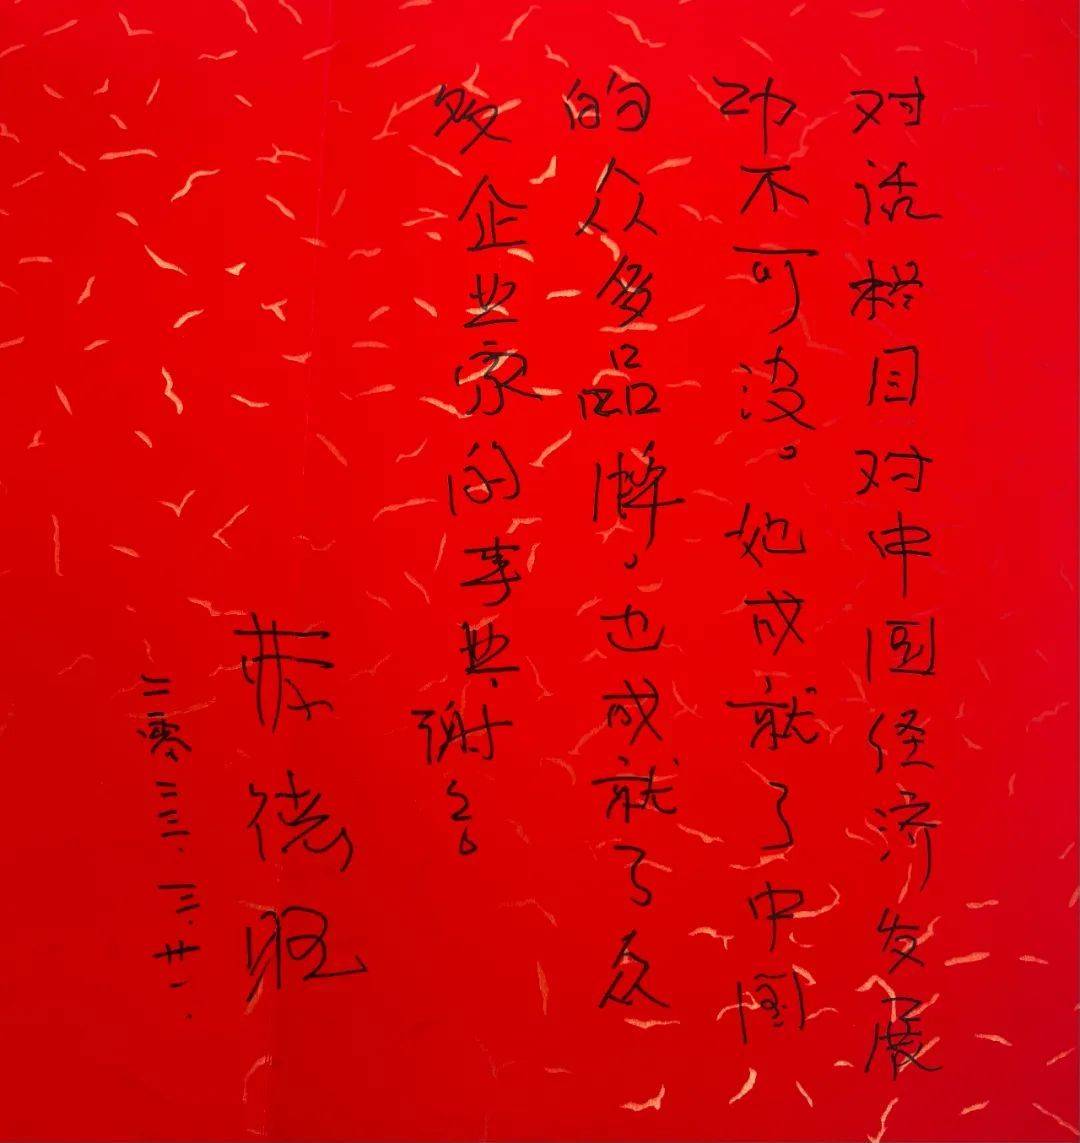 对话栏目对中国经济发展
功不可没。她成就了中国
的众多品牌，也成就了众
多企业家的事业。谢谢。
曹德旺
二零二三.三.廿一.